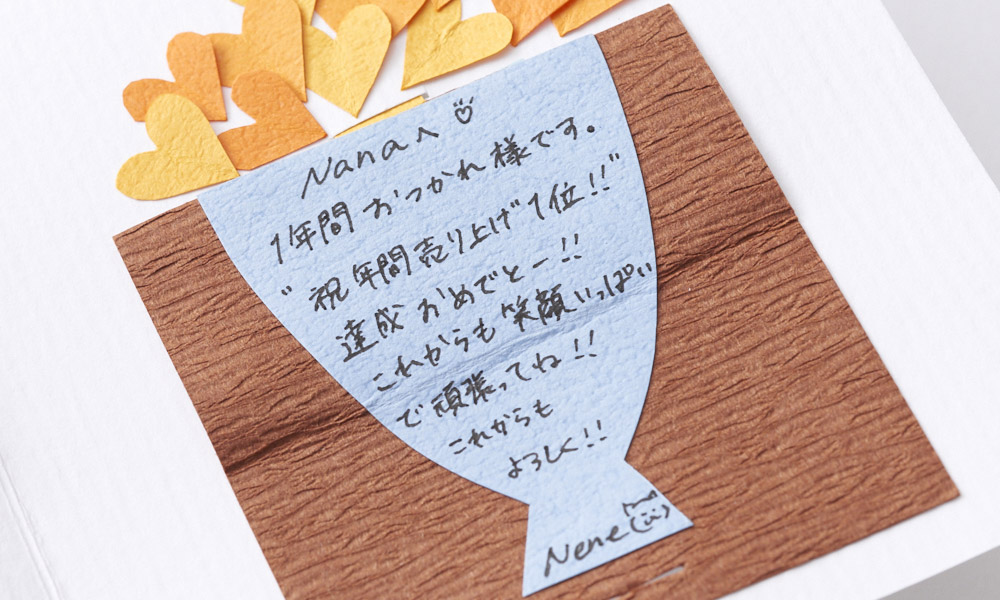 Nanaへ
1年間おつかれ様です。
"祝年間売り上げ1位!!"
達成おめでとー!!
これからも笑顔いっぱい
で頑張ってね!!
これからも
よろしく!!
Nene